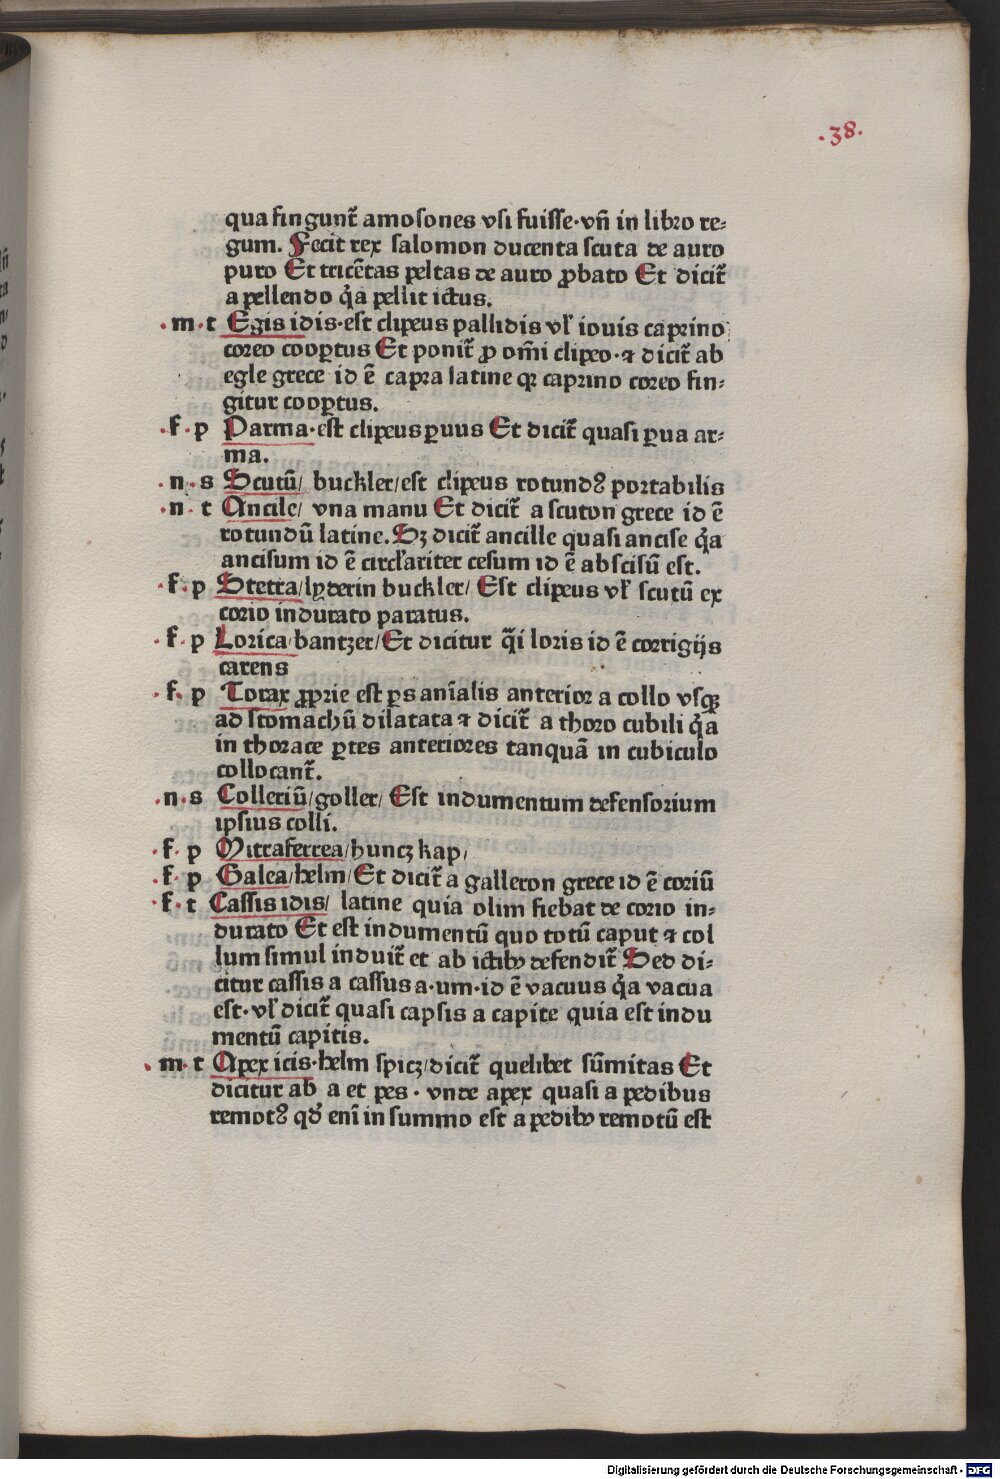 .38.
qua fingunt̃ amosones vsi fuisse·vñ in libro re⸗
gum. Fecit rex salomon ducenta scuta de auro
puro Et tricẽtas peltas de auro ꝓbato Et dicit̃
a pellendo q̃a pellit ictus.
.m·t Egis idis·est clipeus pallidis vl̃ iouis caprino
coreo coop̃tus Et ponit̃ ꝓ om̃i clipeo·⁊ dicit̃ ab
egle grece id ẽ capra latine qꝛ caprino coreo fin⸗
gitur coop̃tus.
.f·p Parma·est clipeus p̃uus Et dicit̃ quasi p̃ua ar⸗
ma.
.n·s Scutũ/ buckler/est clipeus rotundꝰ portabilis
.n·t Ancile/ vna manu Et dicit̃ a scuton grece id ẽ
rotundũ latine. Sꝫ dicit̃ ancille quasi ancise q̃a
ancisum id ẽ circl̃ariter cesum id ẽ abscisũ est.
.f·p Stetra/lyderin buckler/ Est clipeus vl̃ scutũ ex
corio indurato paratus.
.f·p Lorica·bantzer/Et dicitur q̃i loris id ẽ corrigijs
carens
.f·p Torax ꝓprie est p̃s anĩalis anterior a collo vsqꝫ
ad stomachũ dilatata ⁊ dicit̃ a thoro cubili q̃a
in thorace p̃tes anteriores tanquã in cubiculo
collocant̃.
.n·s Colleriũ/goller/ Est indumentum defensorium
ipsius colli.
.f·p Mitraferrea/huntz kap/
.f·p Galea/helm/Et dicit̃ a galleron grece id ẽ coriũ
.f·t Cassis idis/ latine quia olim fiebat de corio in⸗
durato Et est indumentũ quo totũ caput ⁊ col
lum simul induit̃ et ab ictibꝫ defendit̃ Sed di⸗
citur cassis a cassus a·um·id ẽ vacuus q̃a vacua
est·vl̃ dicit̃ quasi capsis a capite quia est indu
mentũ capitis.
.m·t Apex icis·helm spicz/dicit̃ quelibet sũmitas Et
dicitur ab a et pes·vnde apex quasi a pedibus
remotꝰ qd̃ enĩ in summo est a pedibꝫ remotũ est
Digitalisierung gefördert durch die Deutsche Forschungsgemeinschaft - DFG